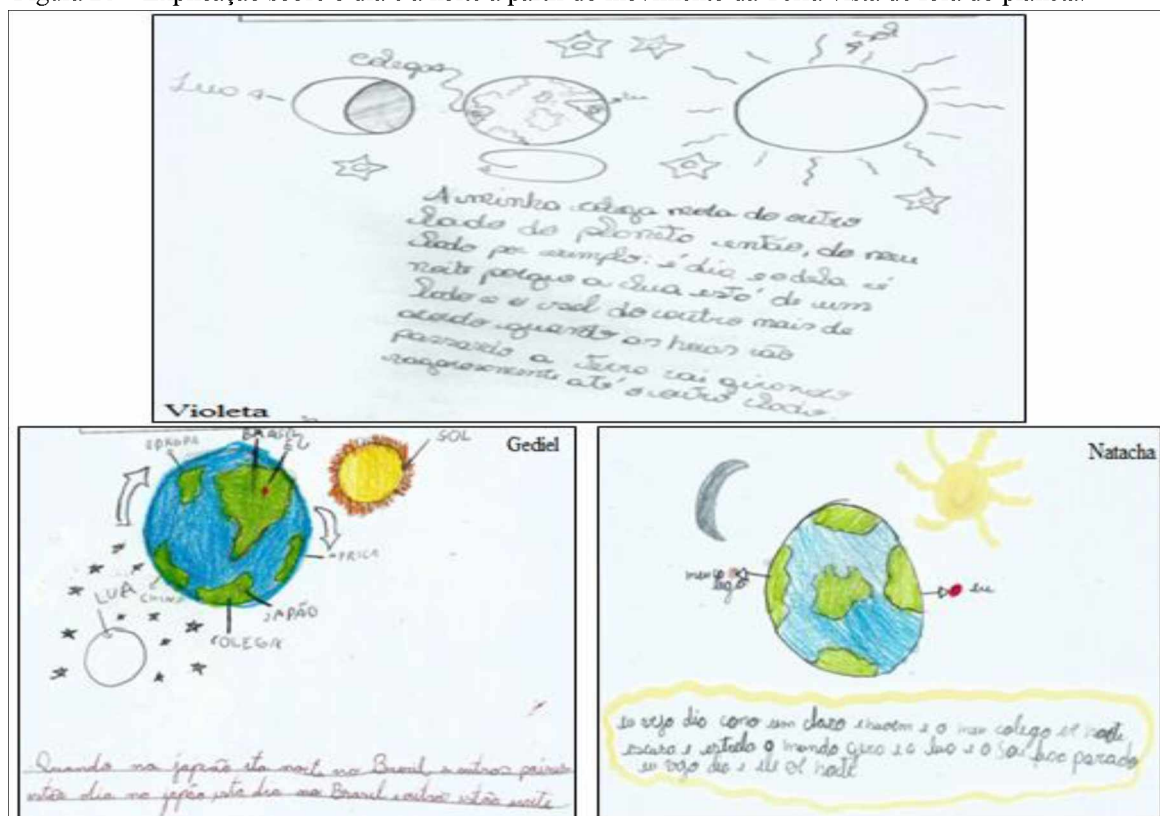 Colega
Lua
eu
sol
A minha colega mora do outro
lado do planeta então, do meu
lado por exemplo: é dia, e o dela é
noite porque a lua está de um
lado e o sol do outro mais de
acordo quando as horas vão
passando a Terra vai girando
vagarosamente até o outro lado.
Violeta
EUROPA
BRASIL
EU
SOL
Gediel
AFRICA
LUA
CHINA
JAPÃO
COLEGA
Quando no japão sta noite no Brasil e outros paises
estão dia no japão, sta dia no Brasil outros estão noite
Natacha
meu colega
eu
eu vejo dia como um claro e o meu colega ve noite
escuro e estrela o mundo gira e a lua e o Sol fica parado
eu vejo dia e ele ve noite